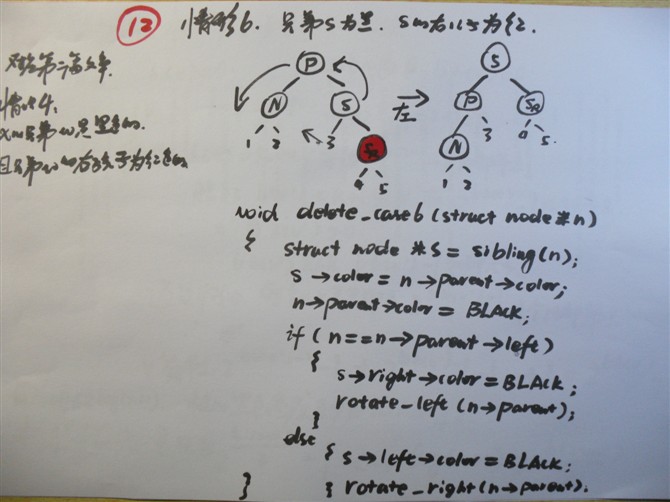 12 情形6. 兄弟S为黑. S的右儿子为红.
对应第二篇文章.
情况4:
x的兄弟w是黑色的.
且兄弟w的右孩子为红色的
P
N S
1 2 3 SR
4 5
左
S
P SR
N 3 4 5
1 2
void delete_case6(struct node *n)
{ struct node *S = sibling(n);
s→color = n→parent→color;
n→parent→color = BLACK;
if (n==n→parent→left)
{
s→right→color=BLACK;
rotate_left (n→parent);
}
else
{ s→left→color=BLACK;
} { rotate_right(n→parent).